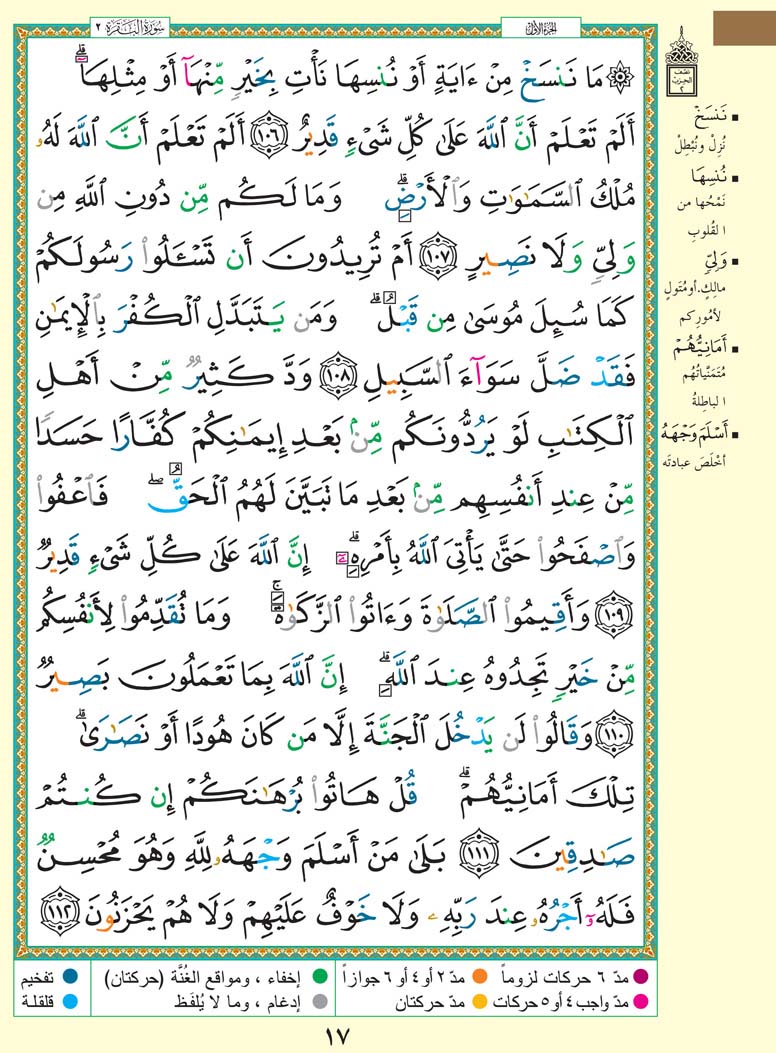 سورة البقرة ٢
الجزء الأول
۞ مَا نَنسَخْ مِنْ ءَايَةٍ أَوْ نُنسِهَا نَأْتِ بِخَيْرٍ مِّنْهَآ أَوْ مِثْلِهَآ ۗ
أَلَمْ تَعْلَمْ أَنَّ ٱللَّهَ عَلَىٰ كُلِّ شَىْءٍ قَدِيرٌ ١٠٦ أَلَمْ تَعْلَمْ أَنَّ ٱللَّهَ لَهُۥ
مُلْكُ ٱلسَّمَـٰوَٰتِ وَٱلْأَرْضِ ۗ وَمَا لَكُم مِّن دُونِ ٱللَّهِ مِن
وَلِىٍّ وَلَا نَصِيرٍ ١٠٧ أَمْ تُرِيدُونَ أَن تَسْـَٔلُوا۟ رَسُولَكُمْ
كَمَا سُئِلَ مُوسَىٰ مِن قَبْلُ ۗ وَمَن يَتَبَدَّلِ ٱلْكُفْرَ بِٱلْإِيمَـٰنِ
فَقَدْ ضَلَّ سَوَآءَ ٱلسَّبِيلِ ١٠٨ وَدَّ كَثِيرٌ مِّنْ أَهْلِ
ٱلْكِتَـٰبِ لَوْ يَرُدُّونَكُم مِّنۢ بَعْدِ إِيمَـٰنِكُمْ كُفَّارًا حَسَدًا
مِّنْ عِندِ أَنفُسِهِم مِّنۢ بَعْدِ مَا تَبَيَّنَ لَهُمُ ٱلْحَقُّ ۖ فَٱعْفُوا۟
وَٱصْفَحُوا۟ حَتَّىٰ يَأْتِىَ ٱللَّهُ بِأَمْرِهِۦٓ ۗ إِنَّ ٱللَّهَ عَلَىٰ كُلِّ شَىْءٍ قَدِيرٌ
١٠٩ وَأَقِيمُوا۟ ٱلصَّلَوٰةَ وَءَاتُوا۟ ٱلزَّكَوٰةَ ۚ وَمَا تُقَدِّمُوا۟ لِأَنفُسِكُم
مِّنْ خَيْرٍ تَجِدُوهُ عِندَ ٱللَّهِ ۗ إِنَّ ٱللَّهَ بِمَا تَعْمَلُونَ بَصِيرٌ
١١٠ وَقَالُوا۟ لَن يَدْخُلَ ٱلْجَنَّةَ إِلَّا مَن كَانَ هُودًا أَوْ نَصَـٰرَىٰ ۗ
تِلْكَ أَمَانِيُّهُمْ ۗ قُلْ هَاتُوا۟ بُرْهَـٰنَكُمْ إِن كُنتُمْ
صَـٰدِقِينَ ١١١ بَلَىٰ مَنْ أَسْلَمَ وَجْهَهُۥ لِلَّهِ وَهُوَ مُحْسِنٌ
فَلَهُۥٓ أَجْرُهُۥ عِندَ رَبِّهِۦ وَلَا خَوْفٌ عَلَيْهِمْ وَلَا هُمْ يَحْزَنُونَ ١١٢
نصف
الحزب
٢
نَنسَخْ
نُزِلْ ونُبْطِلْ
نُنسِهَا
نَمْحُها من
القُلوبِ
وَلِيٍّ
مالِكٍ. أو مُتَولٍّ
لأمُورِكم
أَمَانِيُّهُمْ
مُتَمَنَّياتُهم
الباطِلةُ
أَسْلَمَ وَجْهَهُ
أخْلَصَ عبادتَه
مدّ ٦ حركات لزوماً
مدّ ٢ أو ٤ أو ٦ جوازاً
إخفاء ، ومواقع الغُنَّة (حركتان)
تفخيم
مدّ واجب ٤ أو ٥ حركات
مدّ حركتان
إدغام ، وما لا يُلفَظ
قلقلة
١٧